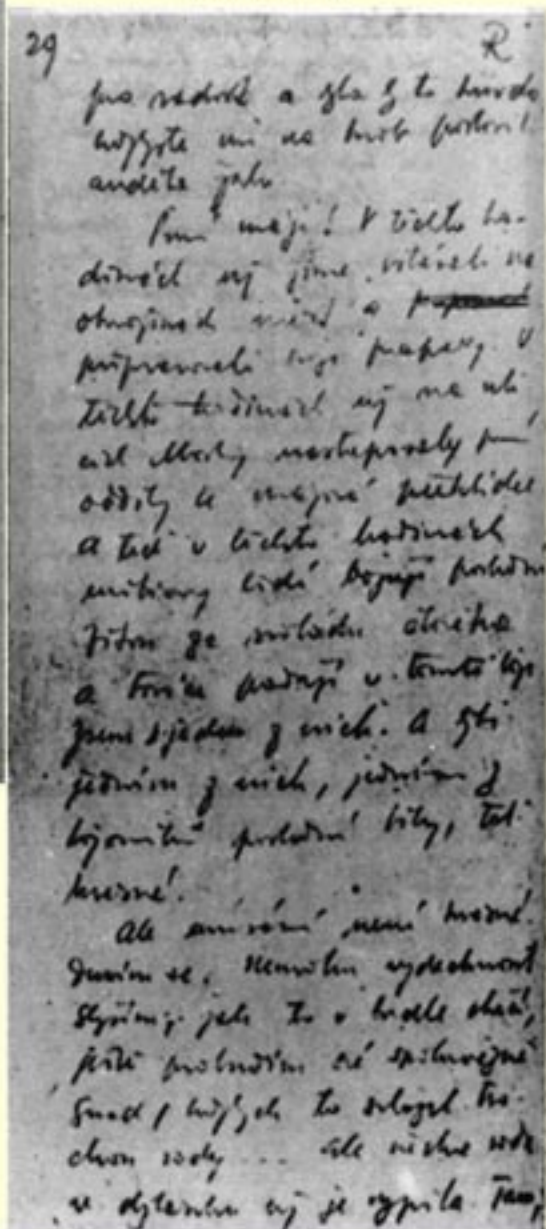 29 R
pro radost a zla by to bývalo
kdybyste mi na hrob postavili
anděla žalu
První máj! V těchto ho-
dinách už jsme vstávali na
okrajích měst a
připravovali své prapory. V
těchto hodinách už na uli
cích Moskvy nastupovaly první
oddíly k májové přehlídce
A teď v těchto hodinách
miliony lidí bojují poslední
bitvu za svobodu člověka
a tisíce padají v tomto boji
Jsem jeden z nich. A být
jedním z nich, jedním z
bojovníků poslední bitvy, to je
krásné.
Ale umírání není krásné.
Dusím se. Nemohu vydechnout
Slyším, jak to v hrdle chrčí,
ještě probudím své spoluvězně
Snad, kdybych to svlažil tro-
chou vody ... Ale všechna voda
ve džbánku už je vypita. Tam,